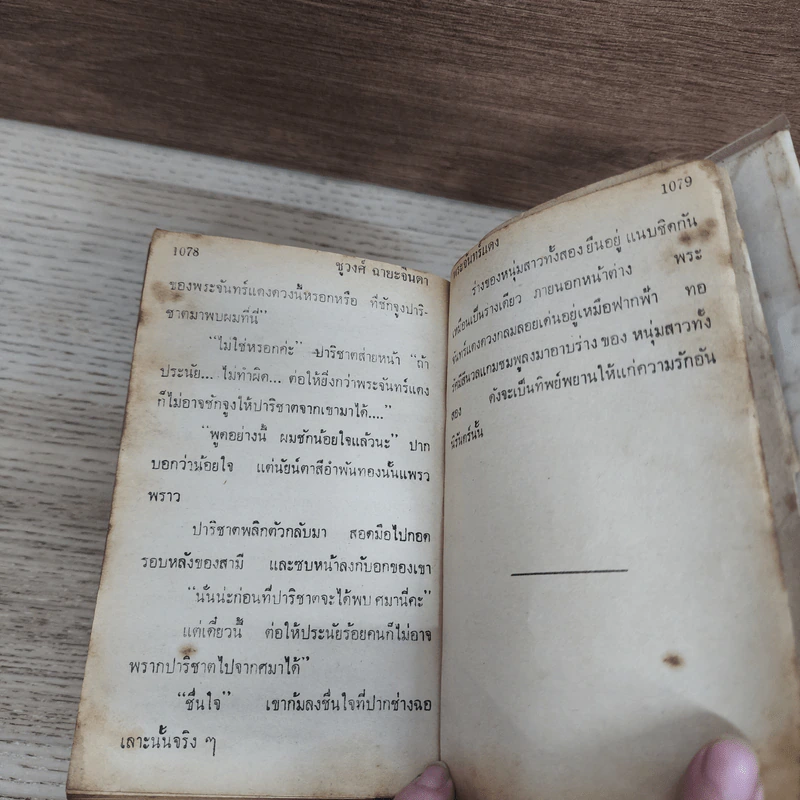 1078
ชูวงศ์ ฉายะจินดา
ของพระจันทร์แดงดวงนี้หรอกหรือ ที่ชักจูงปาริ-
ชาตมาพบผมที่นี่”
“ไม่ใช่หรอกค่ะ” ปาริชาตส่ายหน้า “ถ้า
ประนัย... ไม่ทำผิด... ต่อให้ยิ่งกว่าพระจันทร์แดง
ก็ไม่อาจชักจูงให้ปาริชาตจากเขามาได้....”
“พูดอย่างนี้ ผมชักน้อยใจแล้วนะ” ปาก
บอกว่าน้อยใจ แต่นัยน์ตาสีอำพันทองนั้นแพรว
พราว
ปาริชาตพลิกตัวกลับมา สอดมือไปกอด
รอบหลังของสามี และซบหน้าลงกับอกของเขา
“นั่นน่ะก่อนที่ปาริชาตจะได้พบ ศมานี่คะ”
แต่เดี๋ยวนี้ ต่อให้ประนัยร้อยคนก็ไม่อาจ
พรากปาริชาตไปจากศมาได้”
“ชื่นใจ” เขาก้มลงชื่นใจที่ปากช่างฉอ
เลาะนั้นจริง ๆ
1079
พระจันทร์แดง
ร่างของหนุ่มสาวทั้งสอง ยืนอยู่ แนบชิดกัน
เหมือนเป็นร่างเดียว ภายนอกหน้าต่าง พระ
จันทร์แดงดวงกลมลอยเด่นอยู่เหนือฟากฟ้า ทอ
รัศมีสีนวลแกมชมพูลงมาอาบร่าง ของ หนุ่มสาวทั้ง
สอง ดังจะเป็นทิพย์พยานให้แก่ความรักอัน
นิรันดร์นั้น